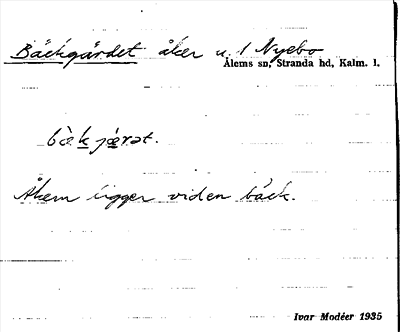 Bäckgärdet åker u. 1 Nyebo
Ålems sn, Stranda hd, Kalm. l.
bæ̀k jæ̀rət.
Åkern ligger vid en bäck.
Ivar Modéer 1935